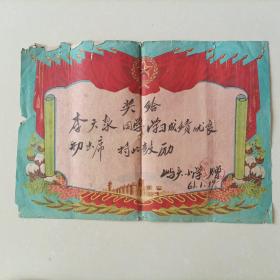 奖给
李天敖同学学习成绩优良
初出席 特此鼓励
小学 赠
61.1.19